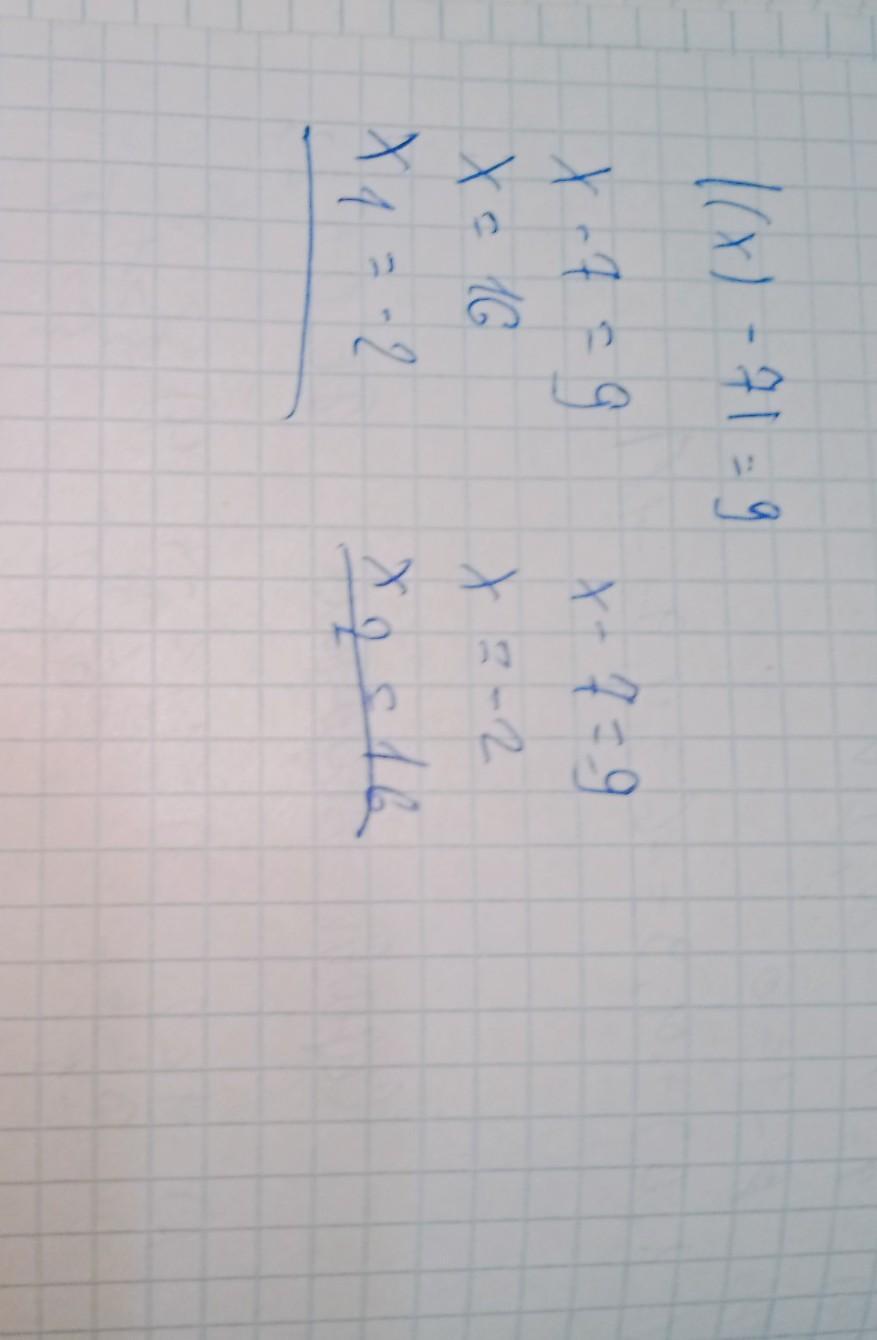 |(x) - 7| = 9
x - 7 = 9    x - 7 = -9
x = 16    x = -2
x1 = -2    x2 = 16